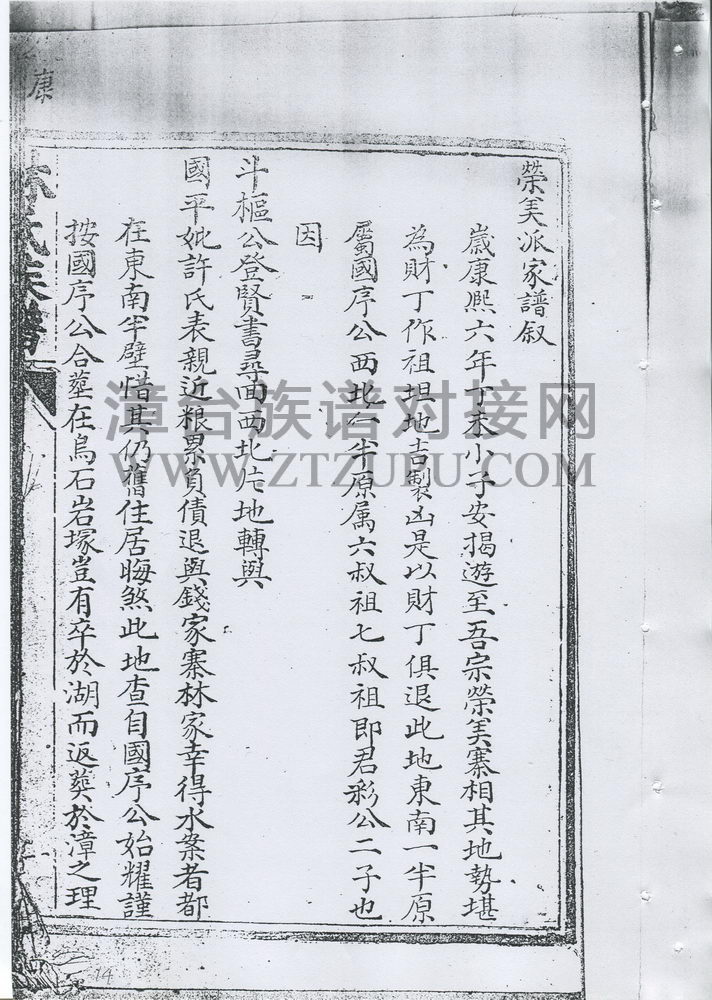 榮美派家譜叙
歲康熙六年丁未小子安揭遊至吾宗榮美寨相其地勢堪
為財丁作祖堪地吉製凶是以財丁俱退此地東南一半原
屬國序公西北一半原属六叔祖七叔祖即君彩公二子也
因
斗樞公登賢書尋面西北片地轉與
國平妣許氏表親近粮累負債退與錢家寨林家幸得水案者都
在東南半壁惜其仍舊住居晦煞此地查自國序公始耀謹
按國序公合塟在烏石岩塚豈有卒於湖而返葬於漳之理
林氏族譜
康
14
漳台族谱对接网
WWW.ZTZUPU.COM